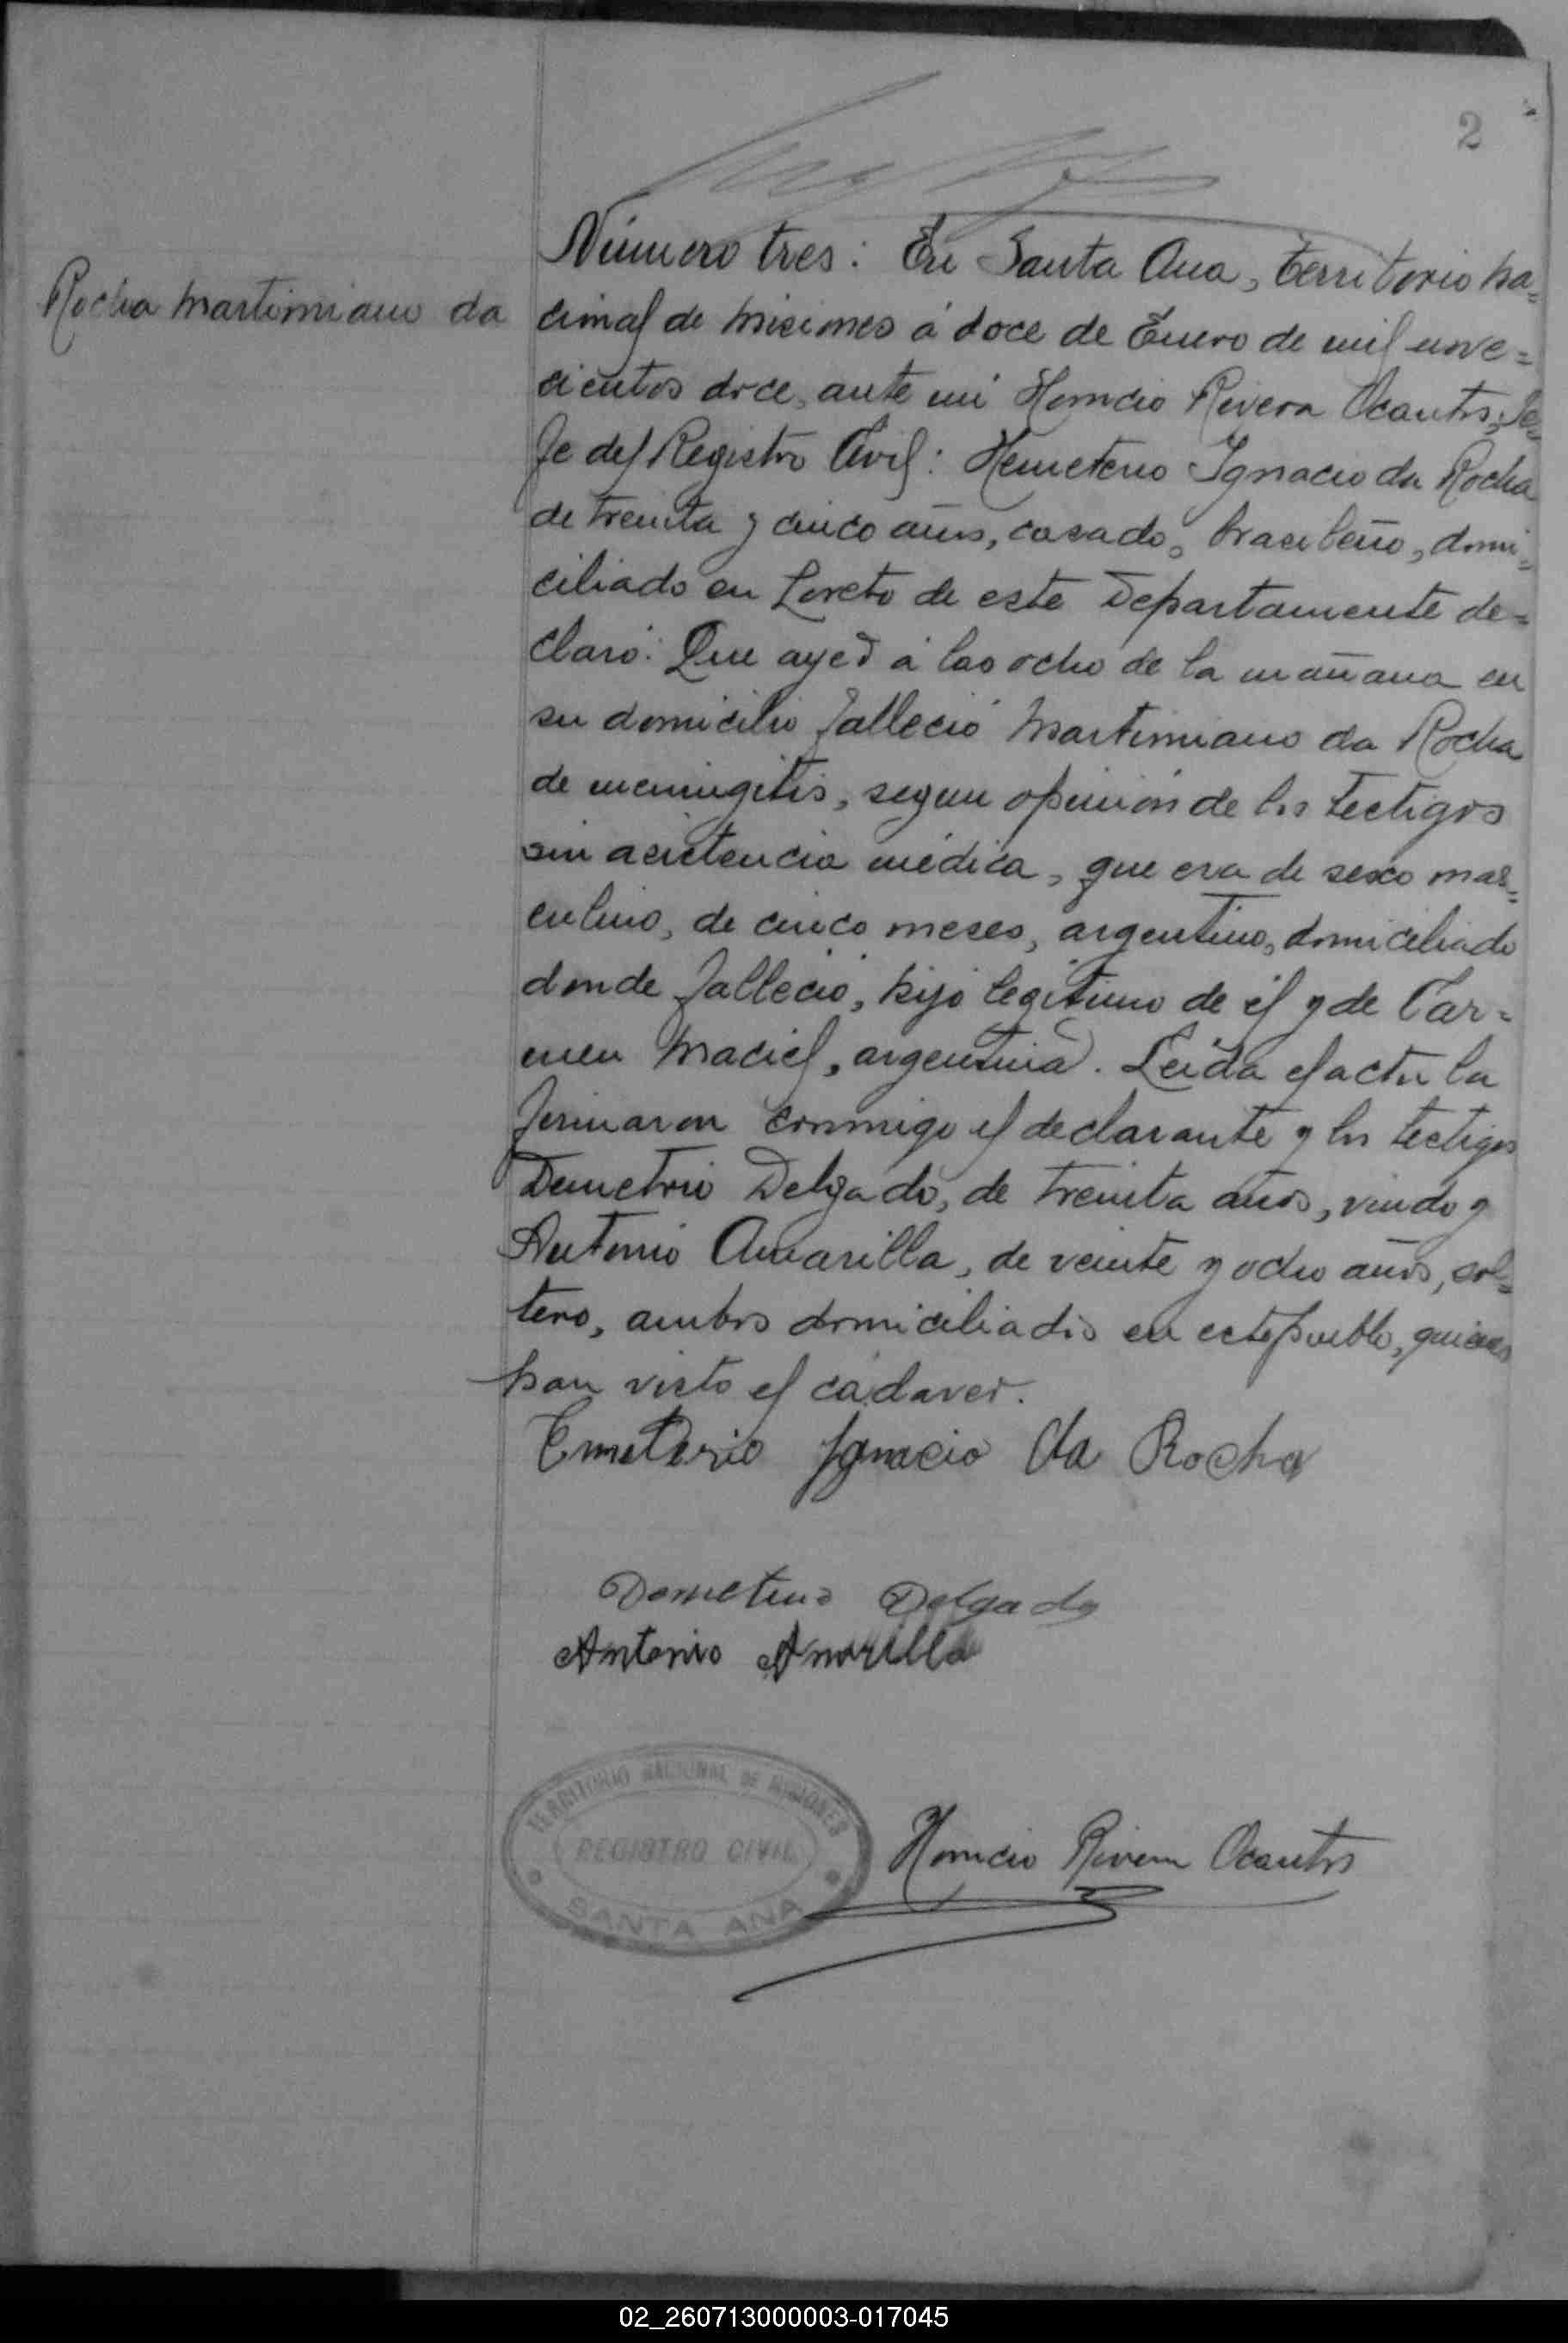 2
Número tres: En Santa Ana, territorio na=
Rocha Martimiano da
cional de Misiones á doce de Enero de mil nove=
cientos doce, ante mi Horacio Rivera Ocantos, Je=
fe del Registro Civil: Hemeterio Ignacio da Rocha
de treinta y cinco años, casado, brasileño, domi=
ciliado en Loreto de este Departamente de=
claró: Que ayer á las ocho de la mañana en
su domicilio falleció Martimiano da Rocha
de meningitis, segun opinión de los testigos
sin asistencia médica, que era de sexo mas=
culino, de cinco meses, argentino, domiciliado
donde falleció, hijo legítimo de él y de Car=
men Maciel, argentina. Leida el acta la
firmaron conmigo el declarante y los testigos
Demetrio Delgado, de treinta años, viudo y
Antonio Amarilla, de veinte y ocho años, sol=
tero, ambos domiciliados en este pueblo, quienes
han visto el cadaver.
Emeterio Ignacio da Rocha
Demetrio Delgado
Antonio Amarilla
TERRITORIO NACIONAL DE MISIONES
REGISTRO CIVIL
SANTA ANA
Horacio Rivera Ocantos
02_260713000003-017045